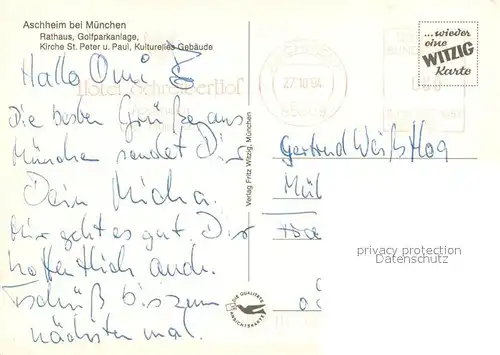 Aschheim bei München
Rathaus, Golfparkanlage,
Kirche St. Peter u. Paul, Kulturelles Gebäude
...wieder
eine
WITZIG
Karte
Hotel Schreiberhof
27.10.94
Hallo Omi
Die besten Grüße aus
München sendet Dir
Dein Micha.
Mir geht es gut. Dir
hoffentlich auch.
Tschüß bis zum
nächsten mal.
Verlag Fritz Witzig, München
Gertrud
Mül
privacy protection
Datenschutz
DIE QUALITÄTS
ANSICHTSKARTE